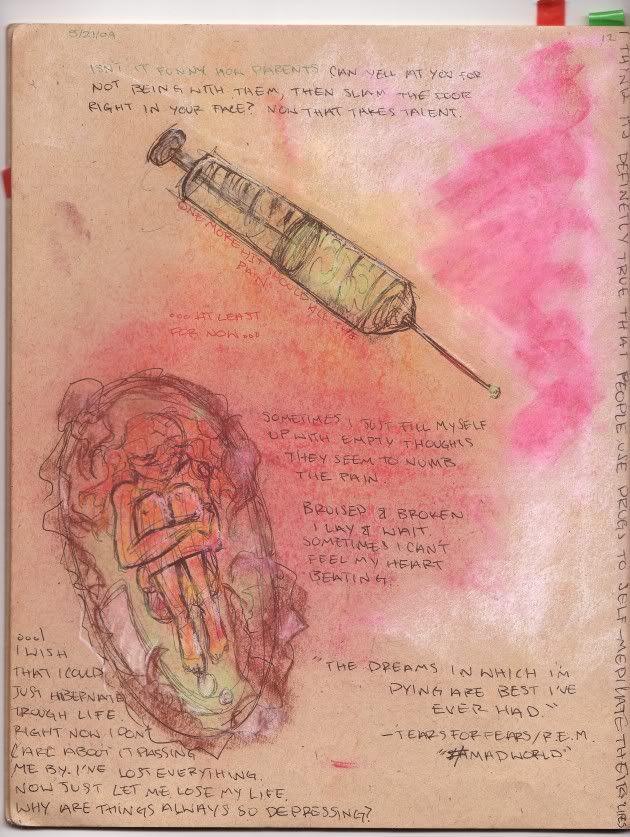 5/21/09
12
ISN'T IT FUNNY HOW PARENTS CAN YELL AT YOU FOR
NOT BEING WITH THEM, THEN SLAM THE DOOR
RIGHT IN YOUR FACE? NOW THAT TAKES TALENT.
ONE MORE HIT SHOULD KILL THIS
PAIN.
...AT LEAST
FOR NOW...
SOMETIMES I JUST FILL MYSELF
UP WITH EMPTY THOUGHTS
THEY SEEM TO NUMB
THE PAIN.
BRUISED & BROKEN
I LAY & WAIT.
SOMETIMES I CAN'T
FEEL MY HEART
BEATING.
...I
I WISH
THAT I COULD
JUST HIBERNATE
TROUGH LIFE.
RIGHT NOW I DON'T
CARE ABOUT IT PASSING
ME BY. I'VE LOST EVERYTHING.
NOW JUST LET ME LOSE MY LIFE.
WHY ARE THINGS ALWAYS SO DEPRESSING?
"THE DREAMS IN WHICH I'M
DYING ARE BEST I'VE
EVER HAD."
-TEARS FOR FEARS/R.E.M.
"MAD WORLD"
I THINK IT'S DEFINETLY TRUE THAT PEOPLE USE DRUGS TO SELF-MEDICATE THEIR